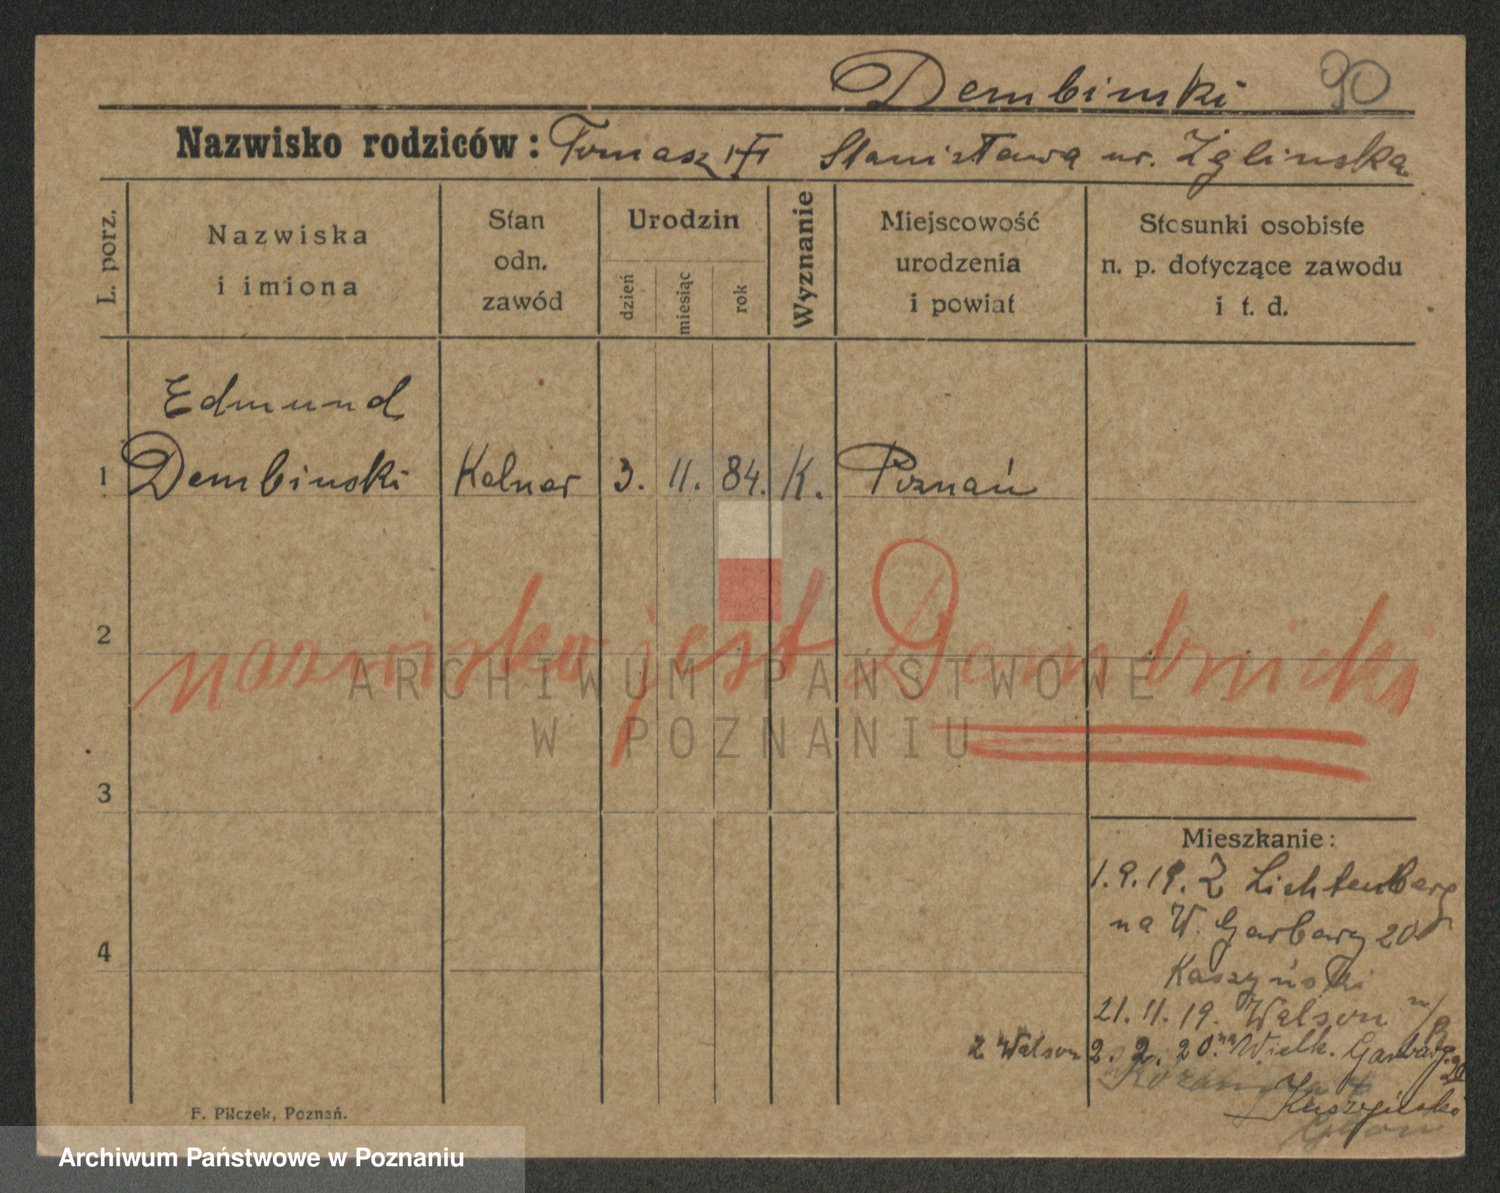 Dembinski 90
Nazwisko rodziców: Tomasz i Stanisława ur. Żglinska
L. porz.
Nazwiska
i imiona
Stan
odn.
zawód
Urodzin
dzień
miesiąc
rok
Wyznanie
Miejscowość
urodzenia
i powiat
Stosunki osobiste
n. p. dotyczące zawodu
i t. d.
Edmund
1 Dembinski Kelner 3. 11. 84. K. Poznań
2 nazwisko jest Dembnicki
ARCHIWUM PAŃSTWOWE
W POZNANIU
3
Mieszkanie:
1.9.19. Z Lichtenberg
na W. Garbary 20
Kaszyński
4
21. 11. 19. Welson n/
z Welson 2. 2. 20. na Wielk. Garbary 20
Kaszyński
F. Pilczek, Poznań.
Archiwum Państwowe w Poznaniu